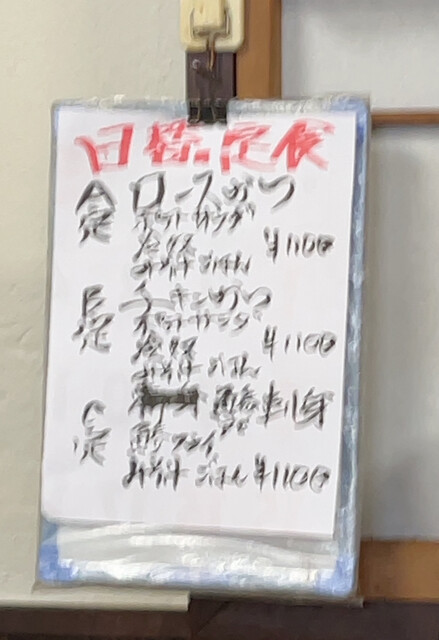 日替り定食
A定 ロースかつ
ポテトサラダ
冷奴
みそ汁 ごはん ¥1100
B定 チキンかつ
ポテトサラダ
冷奴 ¥1100
みそ汁 ごはん
C定 刺身
フライ
みそ汁 ごはん ¥1100